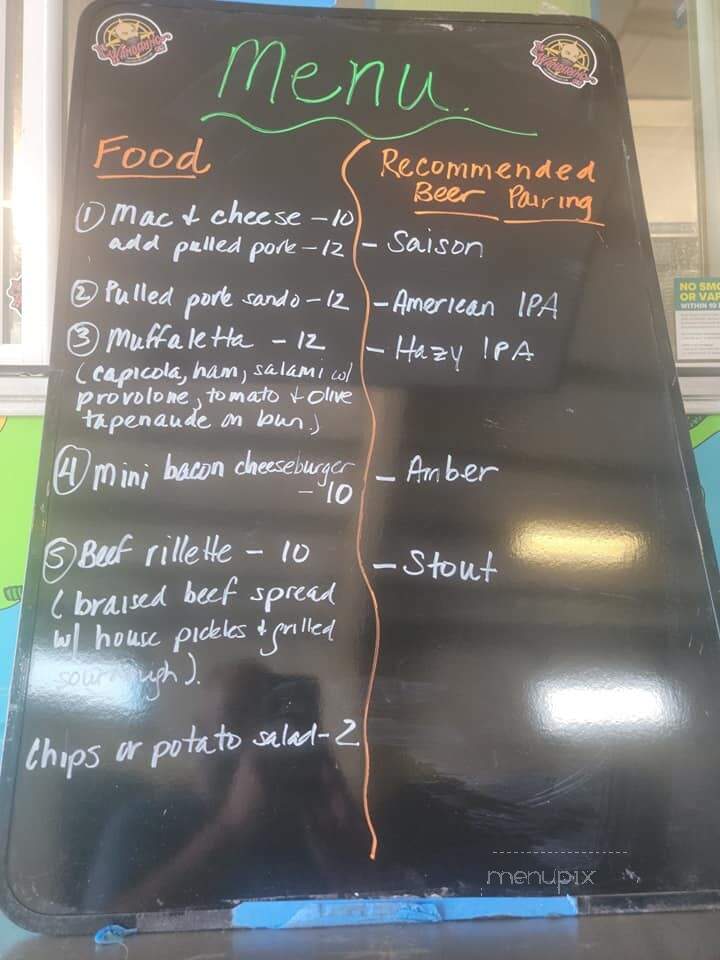 Menu.
Food
Recommended
Beer Pairing
① Mac & cheese - 10
add pulled pork - 12 - Saison
② Pulled pork sando - 12 - American IPA
③ Muffaletta - 12 - Hazy IPA
(capicola, ham, salami w/
provolone, tomato & olive
tapenaude on bun.)
④ Mini bacon cheeseburger
- 10 - Amber
⑤ Beef rillette - 10 - Stout
(braised beef spread
w/ house pickles & grilled
sourdough).
Chips or potato salad - 2
NO SMO
OR VAP
WITHIN
menupix